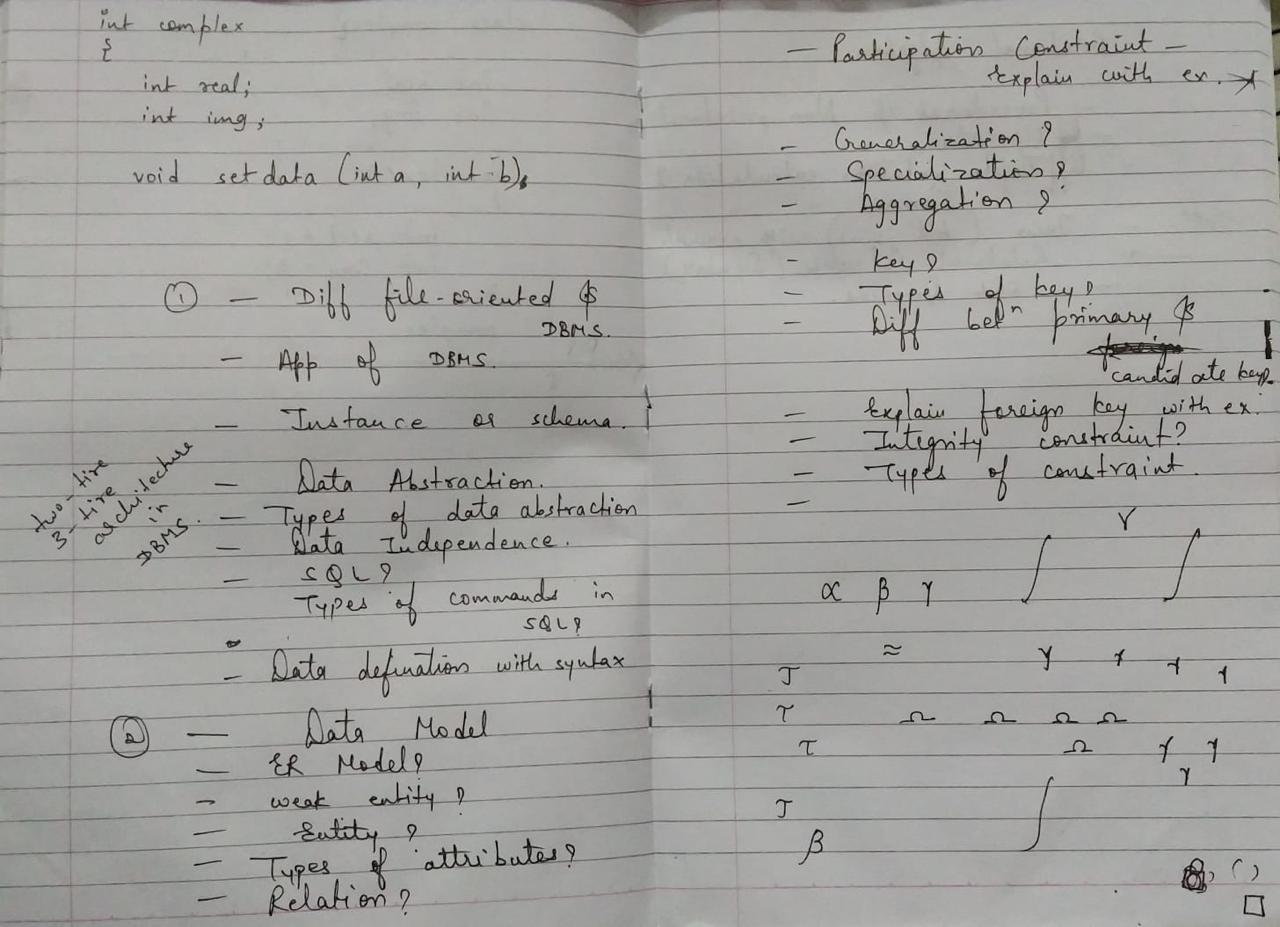 int complex
{
int real;
int img;
void setdata (int a, int b);
① — Diff file-oriented &
DBMS.
— App of DBMS.
— Instance or schema.
two-tire
3-tire
architecture
in
DBMS.
— Data Abstraction.
— Types of data abstraction
— Data Independence.
— SQL?
Types of commands in
SQL?
— Data defination with syntax
② — Data Model
— ER Model?
— weak entity?
— Entity?
— Types of attributes?
— Relation?
— Participation Constraint —
Explain with ex.
— Generalization?
— Specialization?
— Aggregation?
— key?
— Types of key?
— Diff betn primary &
candidate key.
— Explain foreign key with ex.
— Integrity constraint?
— Types of constraint.
—
γ
α β γ ∫ ∫
≈ γ γ γ γ
J
τ Ω Ω Ω Ω
τ Ω γ γ
γ
J ∫
β
, ( )
□